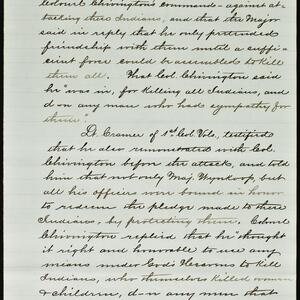 Edourl Chivington's command - against at-
tacking these Indians, and that the Major
said in reply that he only pretended
friendship with them until a suffi-
cient force could be assembled to kill
them all. That Col. Chivington said
he "was in, for killing all Indians, and
d-n any man who had sympathy for
them."
Lt. Cramer of 1st Col. Vols, testified
that he also remonstrated with Col.
Chivington before the attack, and told
him that not only Maj. Wynkoop, but
all his officers were bound in honor
to redeem the pledge made to these
Indians, by protecting them. Colonel
Chivington replied that he "thought
it right and honorable to use any
means under God's Heavens to kill
Indians, who themselves killed women
& children, d-n any man that